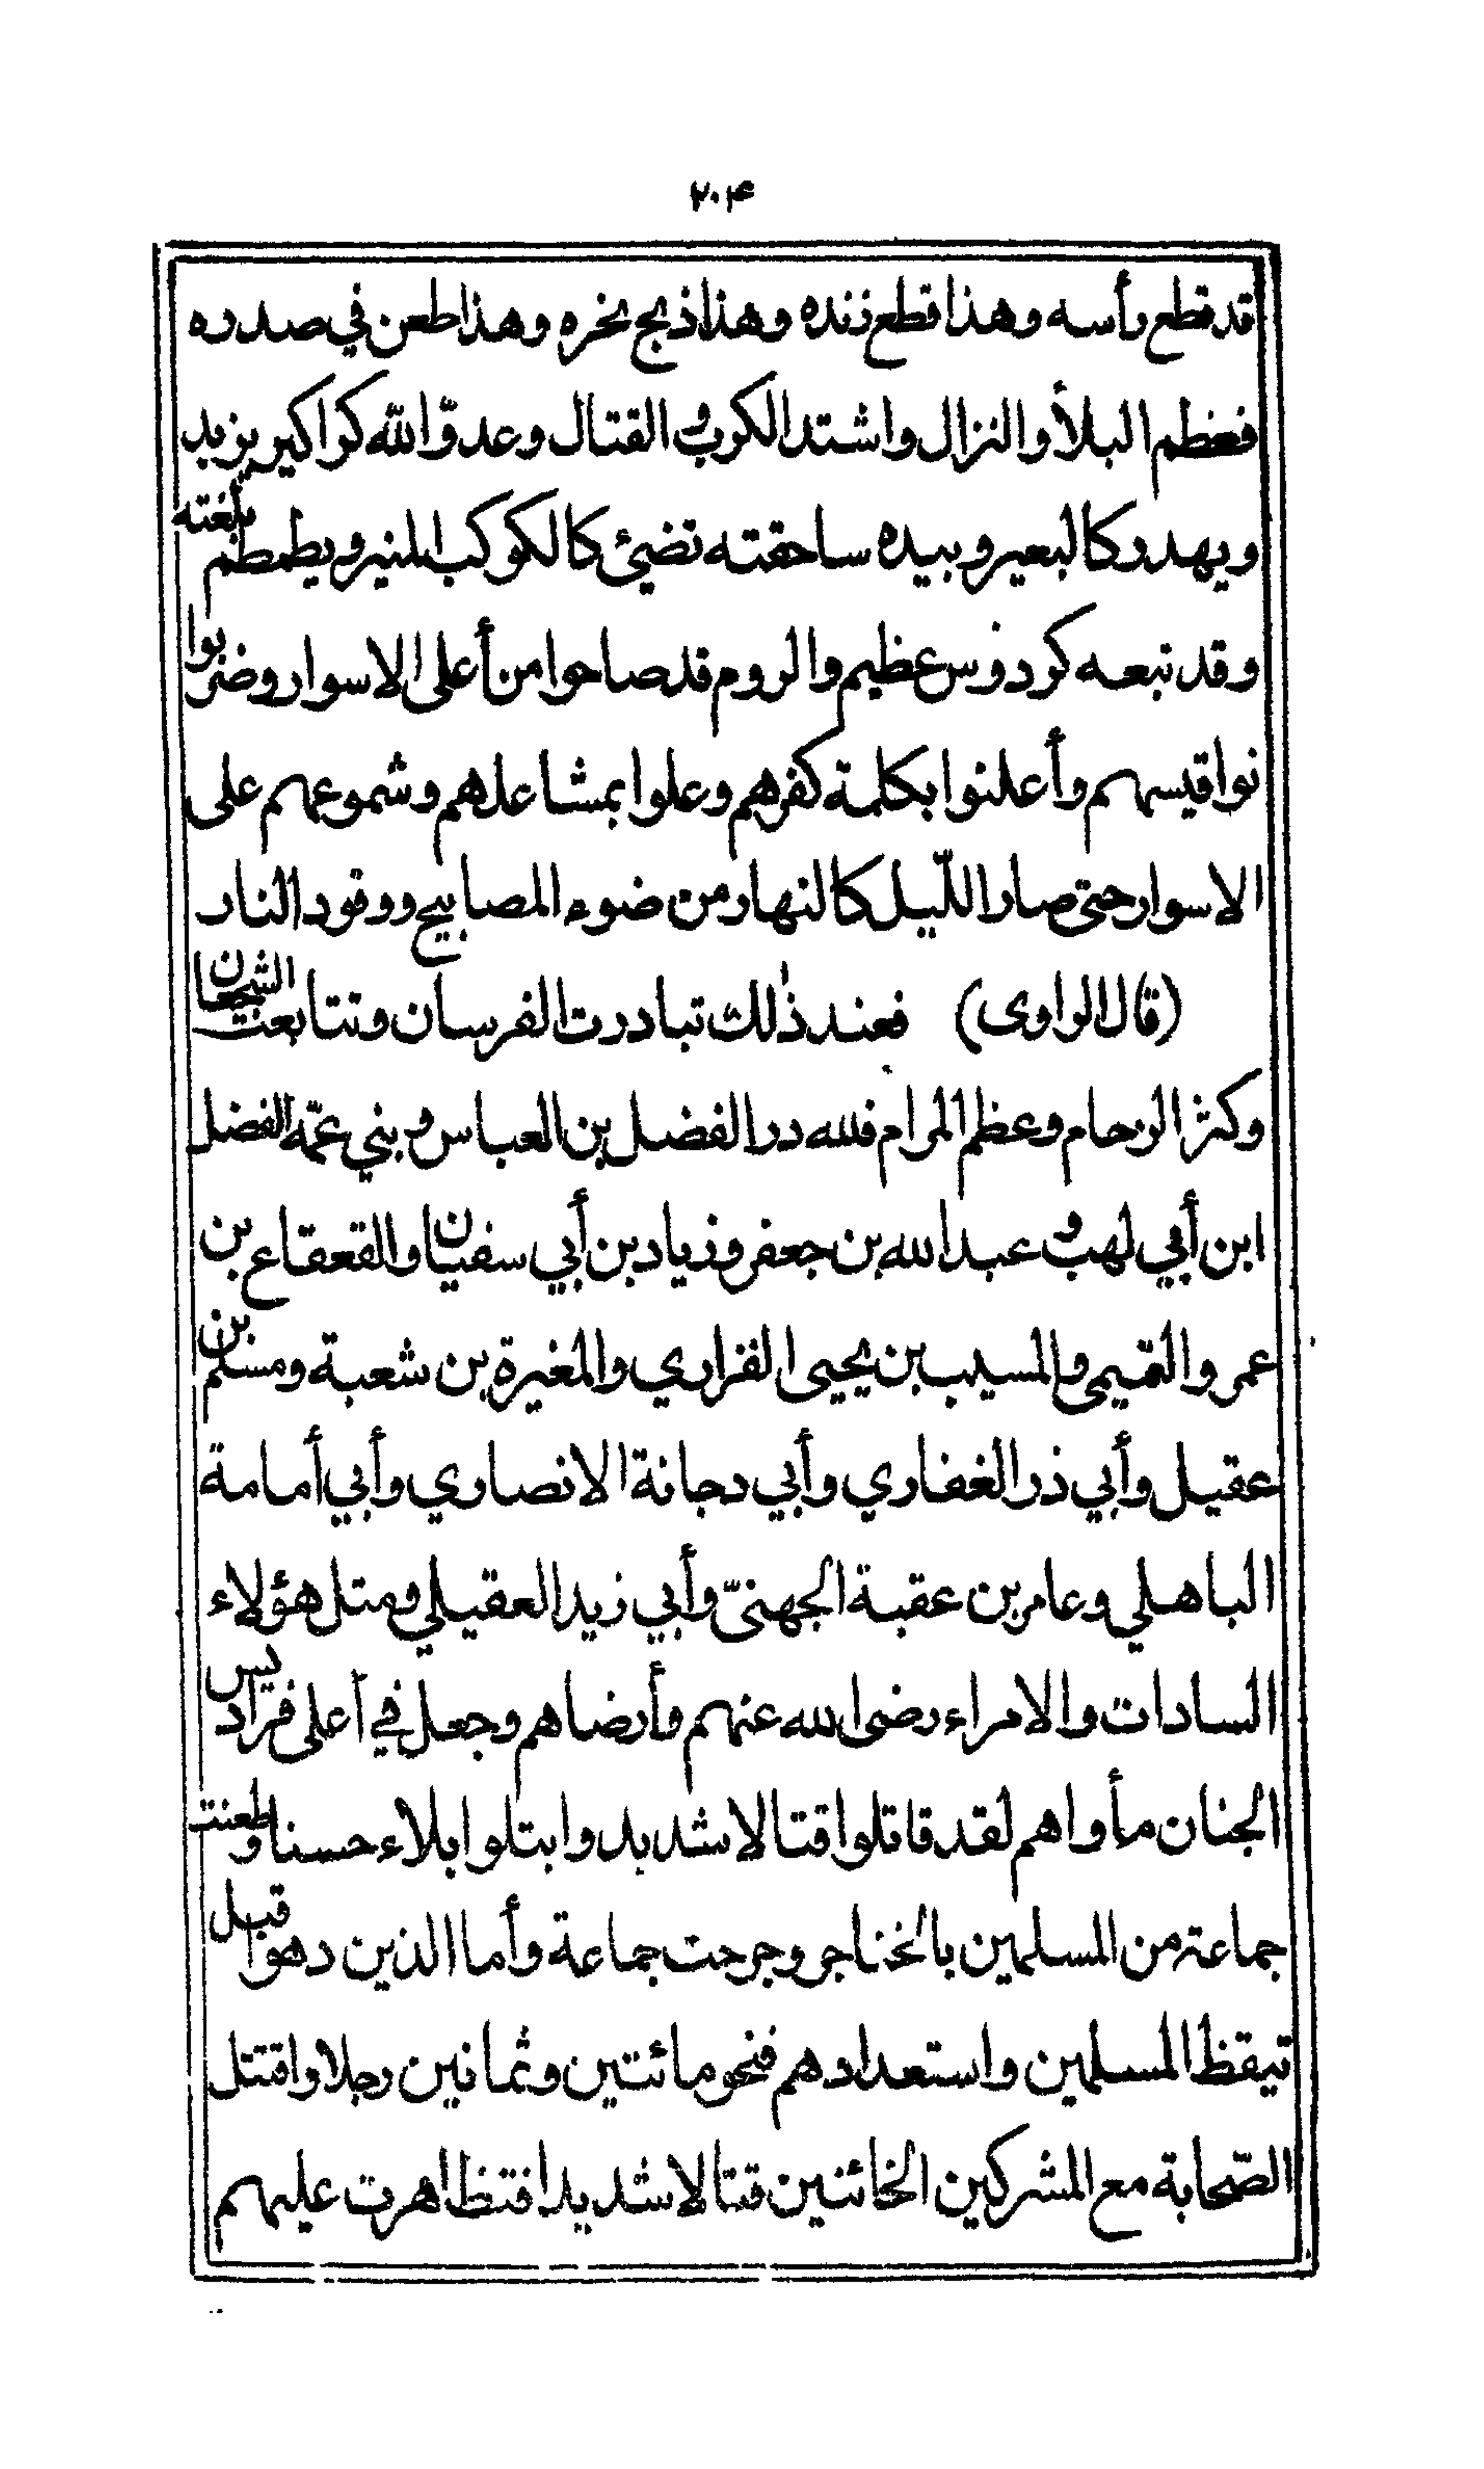 ٢٠٤
قد قطع رأسه وهذا قطع زنده وهذا ذبح نحره وهذا طعن في صدره
فعظم البلأ والنزال واشتد الكرب والقتال وعدوّ الله كراكير يزيد
ويهدر كالبعير وبيده ساحقته تضيئ كالكوكب المنير ويطمطم بلغته
وقد تبعه كردوس عظيم والروم قد صاحوا من أعلى الاسوار وضربوا
نواقيسهم وأعلنوا بكلمة كفرهم وعلوا بمشاعلهم وشموعهم على
الاسوار حتى صار اللّيل كالنهار من ضوء المصابيح ووقود النار
(قال الراوى) فعند ذٰلك تبادرت الفرسان وتتابعت الشجعان
وكثر الزحام وعظم المرام فلله در الفضل بن العباس وبني عمّه الفضل
ابن أبي لهب وعبد الله بن جعفر وزياد بن أبي سفيان والقعقاع بن
عمرو التميمى والمسيب بن يحيى الفزاري والمغيرة بن شعبة ومسلم بن
عقيل وأبي ذر الغفاري وأبي دجانة الانصاري وأبي أمامة
الباهلي وعامر بن عقبة الجهنيّ وأبي زيد العقيلي ومتل هؤلاء
السادات والامراء رضى الله عنهم وأرضاهم وجعل في أعلى فراديس
الجنان مأواهم لقد قاتلوا قتالا شديد وابتلوا بلاء حسنا وطعنت
جماعة من المسلمين بالخناجر وجرحت جماعة وأما الذين دهوا قبل
تيقظ المسلمين واستعدادهم فنحو مائتين وثمانين رجلا واقتتل
الصّحابة مع المشركين الخائنين قتالا شديدا فتظاهرت عليهم